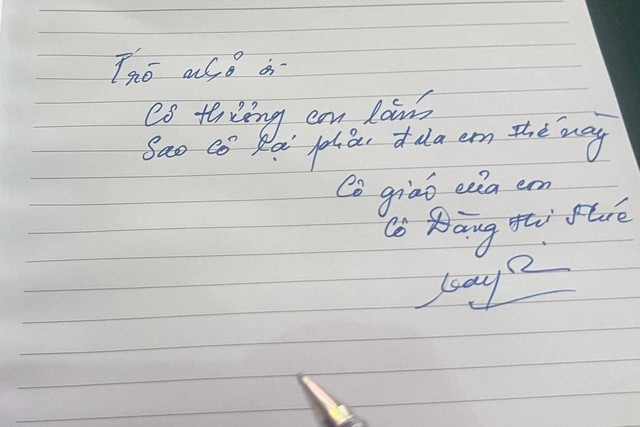 Trò nhỏ ơi
Cô thương con lắm
Sao cô lại phải đưa con thế này
Cô giáo của con
Cô Đặng thị Phúc